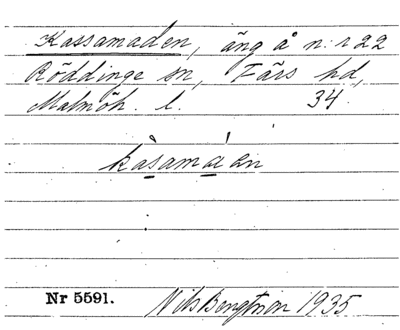 Kassamaden, äng å n:r 22
Röddinge sn, Färs hd,
Malmöh. l. 34.
kasamaan
Nr 5591. Nils Bengtson 1935